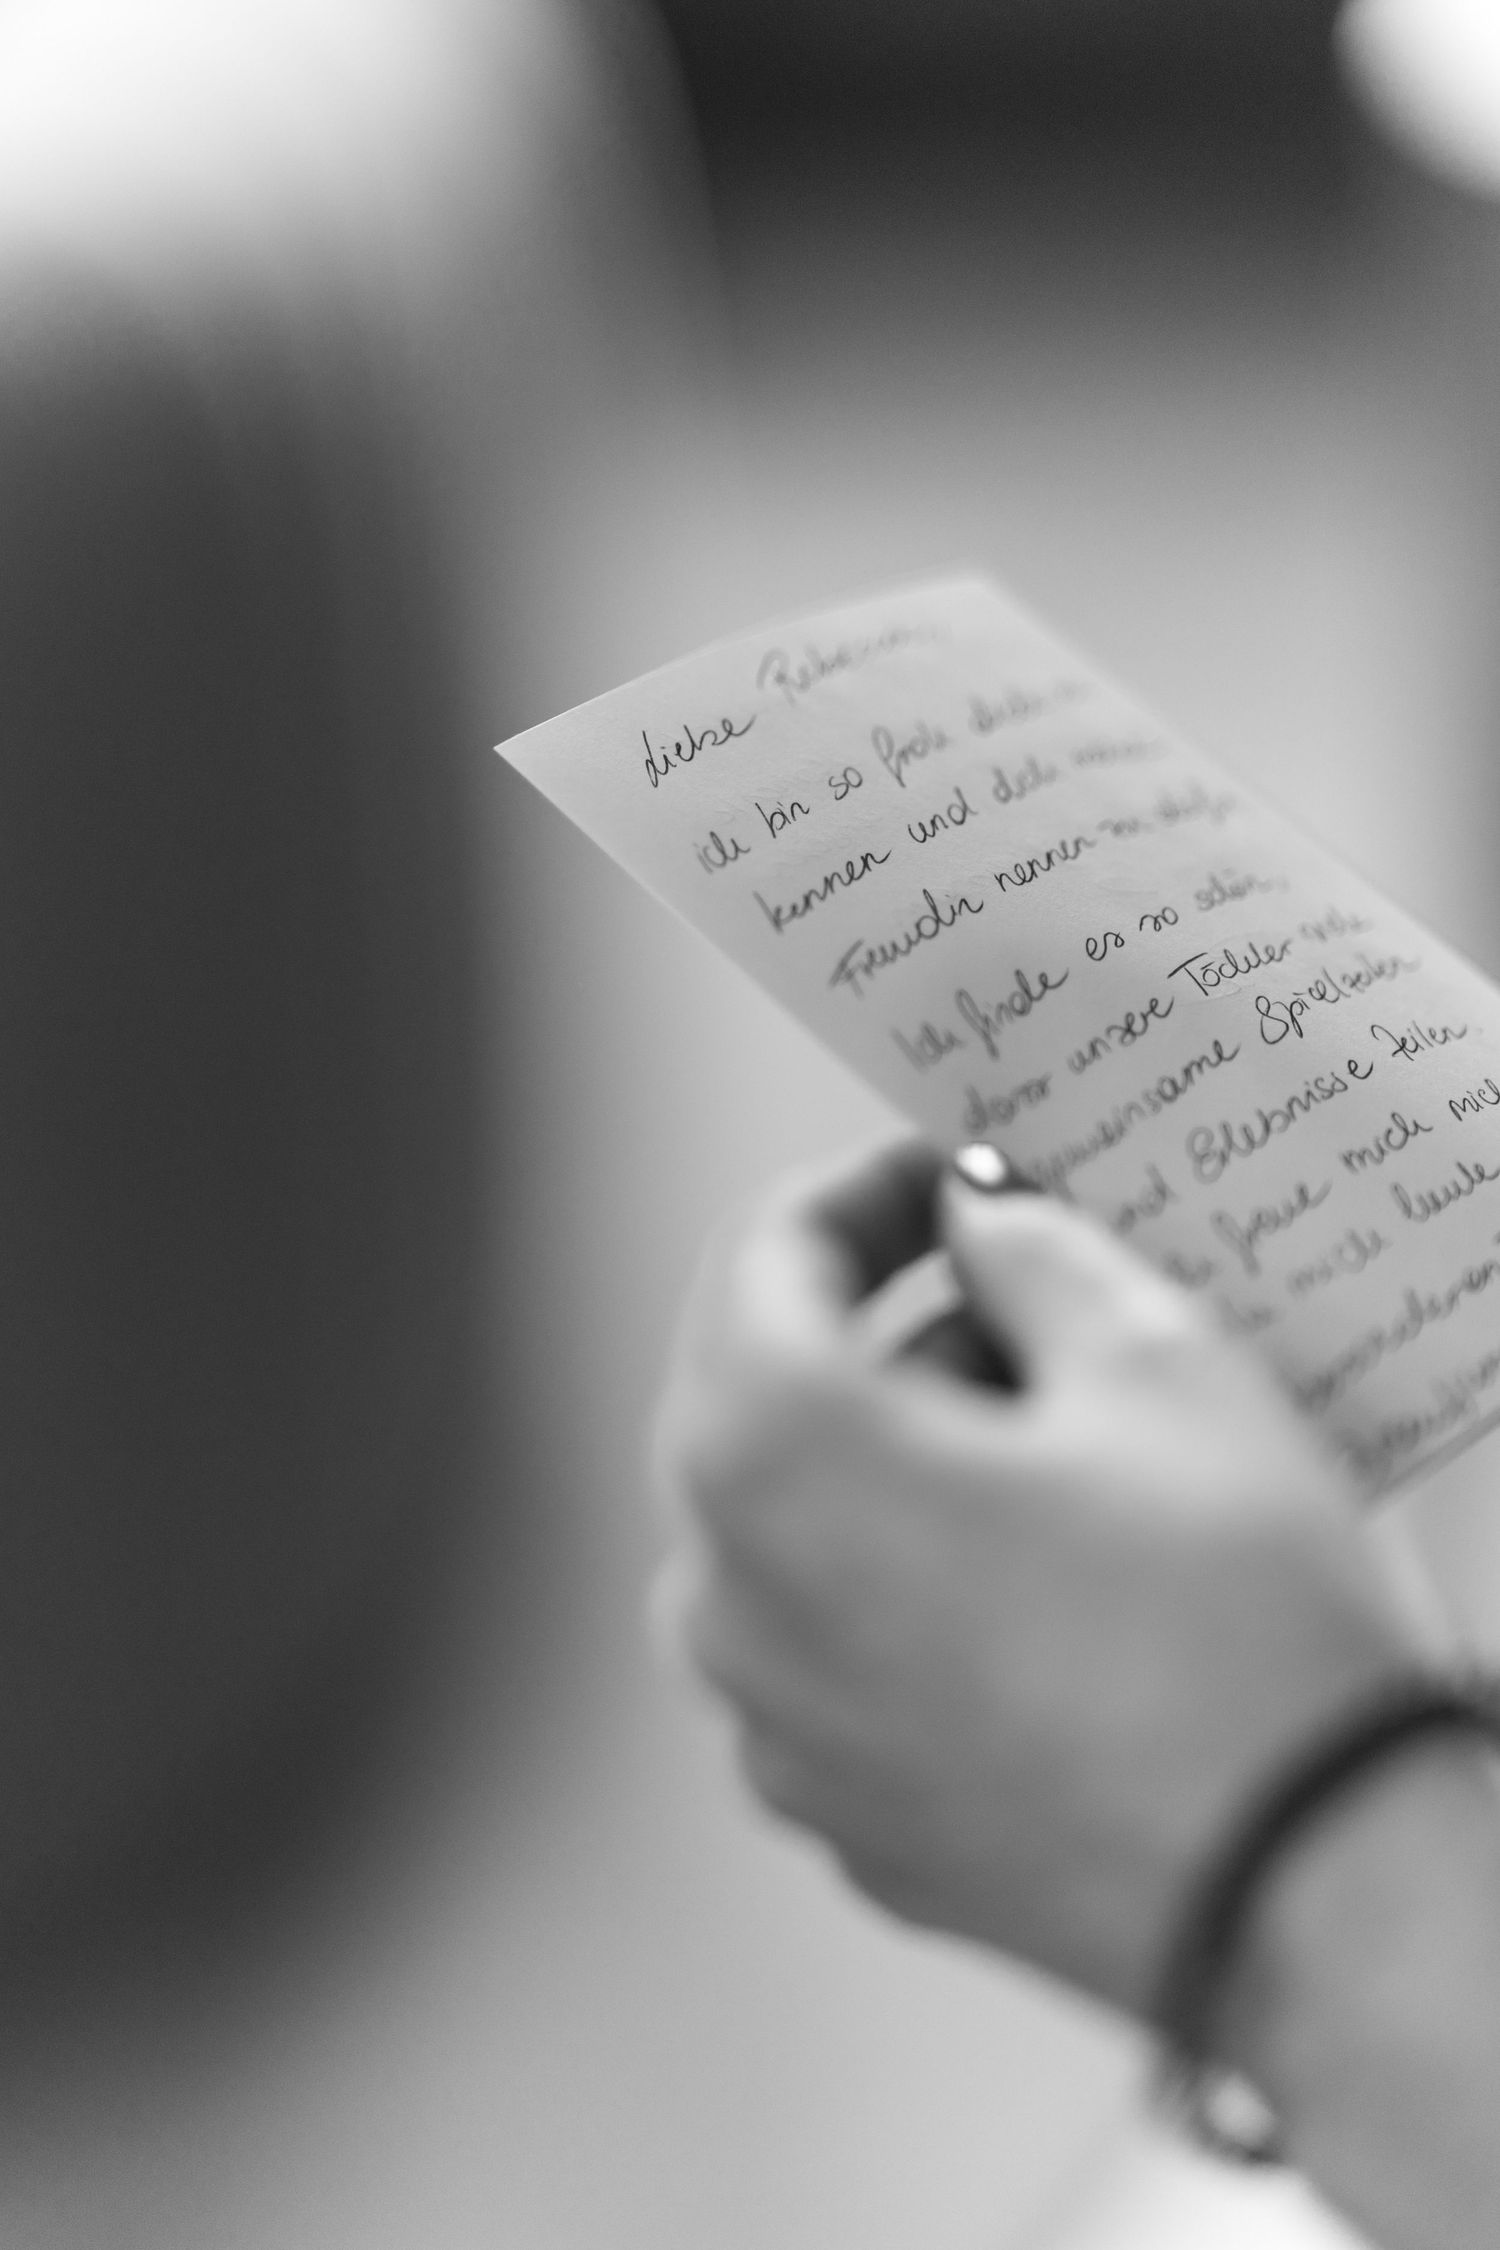 Liebe Rebecca,
ich bin so froh dich zu
kennen und dich meine
Freundin nennen zu dürfen.
Ich finde es so schön,
dass unsere Töchter viele
gemeinsame Spielzeiten
und Erlebnisse teilen.
Ich freue mich
mich heute
besonderen